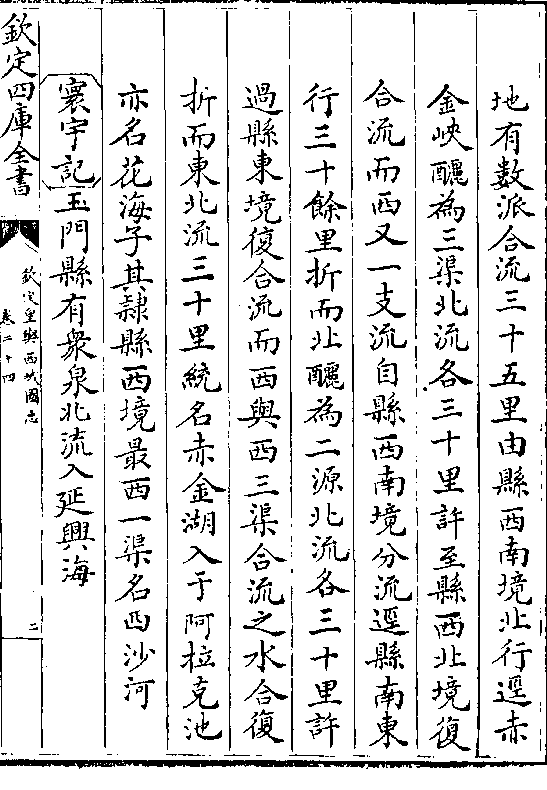 地有數派合流三十五里由縣西南境北行逕赤
金峽釃為三渠北流各三十里許至縣西北境復
合流而西又一支流自縣西南境分流逕縣南東
行三十餘里折而北釃為二源北流各三十里許
過縣東境復合流而西與西三渠合流之水合復
折而東北流三十里統名赤金湖入于阿拉克池
亦名花海子其隷縣西境最西一渠名西沙河
寰宇記玉門縣有衆泉北流入延興海
欽定四庫全書
欽定皇輿西域圖志
卷二十四
二